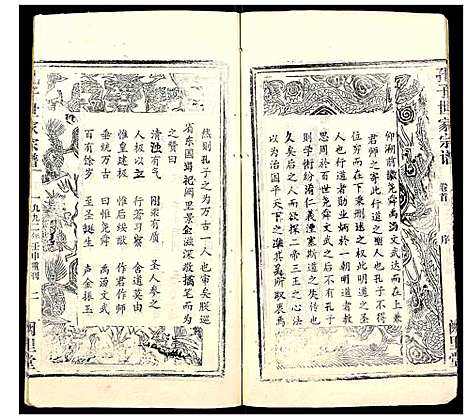 孔子世家宗谱
卷首
序
阙里堂
仰溯前徽尧舜禹汤文武达而在上兼
君师之寄此行道之圣人也孔子不得
位穷而在下秉删述之权此明道之圣
人也行道者勋业炳于一朝明道者教
思周于百世尧舜文武之道不有孔子
则学术纷淆仁义湮塞斯道之失传也
久矣后之人而欲探二帝三王之心法
以为治国平天下之准其奚所取衷焉
然则孔子之为万古一人也审矣朕巡
省东国谒祀阙里景企滋深敬摛笔而为
之赞曰
清浊有气　刚柔有质　圣人参之
人极以立　行著习察　舍道莫由
惟皇建极　惟后绥猷　作君作师
垂统万古　曰惟尧舜　禹汤文武
百有余岁　至圣挺生　声金振玉
孔子世家宗谱
一九九二年壬申重刊
阙里堂